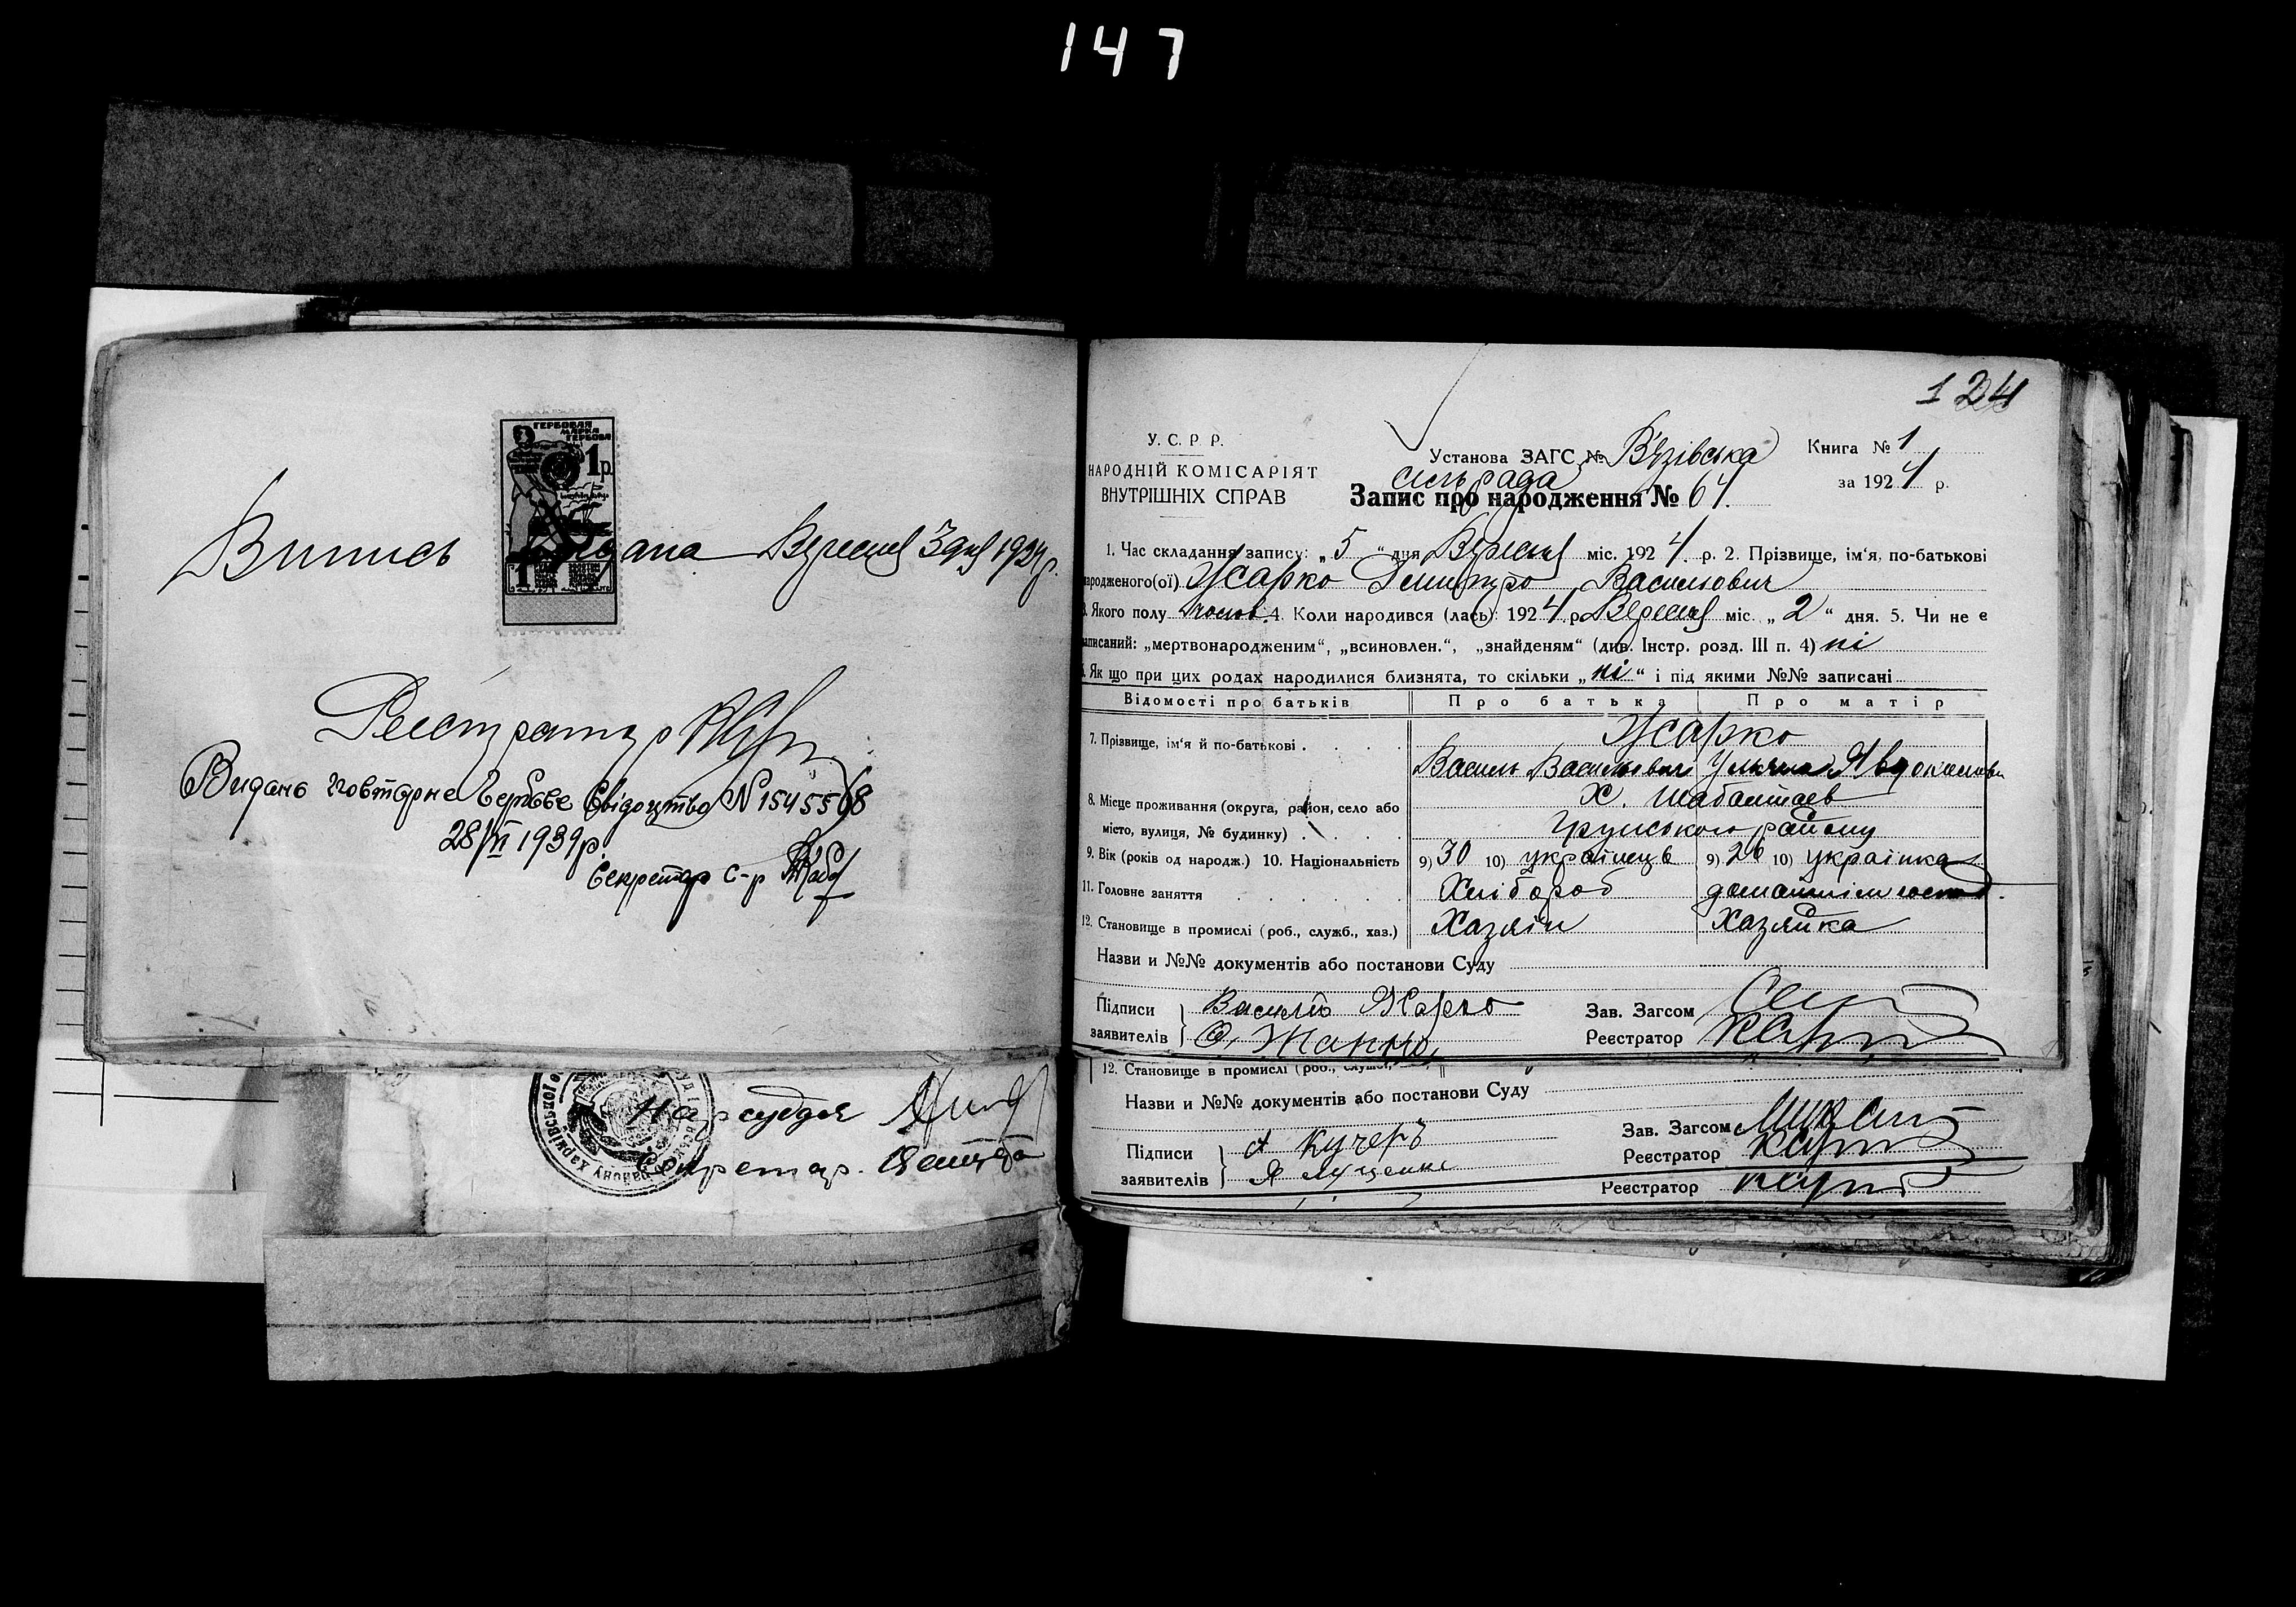 147
ГЕРБОВАЯ
МАРКА
ГЕРБОВА
1 р.
Випись видана Вересня 3 дня 1924 р.
Реєстратор
Видано повторне Свідоцтво № 1545568
28/VI 1939 р.
Секретар с-р
Нарсуддя
Секретар.
124
У. С. Р. Р.
НАРОДНІЙ КОМІСАРІЯТ
ВНУТРІШНІХ СПРАВ
Установа ЗАГС № В'язівська
сільрада
Книга № 1
за 1924 р.
Запис про народження № 64.
1. Час складання запису: „5“ дня Вересня міс. 1924 р. 2. Прізвище, ім'я, по-батькові
народженого(ої) Жарко Дмитро Васильович
3. Якого полу чолов. 4. Коли народився (лась): 1924 р. Вересня міс. „2“ дня. 5. Чи не є
записаний: „мертвонародженим“, „всиновлен.“, „знайденям“ (див. Інстр. розд. III п. 4) ні
6. Як що при цих родах народилися близнята, то скільки „ні“ і під якими №№ записані
Відомості про батьків Про батька Про матір
7. Прізвище, ім'я й по-батькові Жарко
Василь Васильович Уляна
8. Місце проживання (округа, район, село або
місто, вулиця, № будинку)
Х. Шабалтаєв
Грунського району
9. Вік (років од народж.) 10. Національність 9) 30 10) українець 9) 26 10) українка
11. Головне заняття Хлібороб домашнім
12. Становище в промислі (роб., служб., хаз.) Хазяїн Хазяйка
Назви и №№ документів або постанови Суду
Підписи
заявителів
Василь Жарко
Зав. Загсом
Реєстратор
12. Становище в промислі (роб., служб.,
Назви и №№ документів або постанови Суду
Підписи
заявителів
А Кучеръ
Я Луценко
Зав. Загсом
Реєстратор
Реєстратор